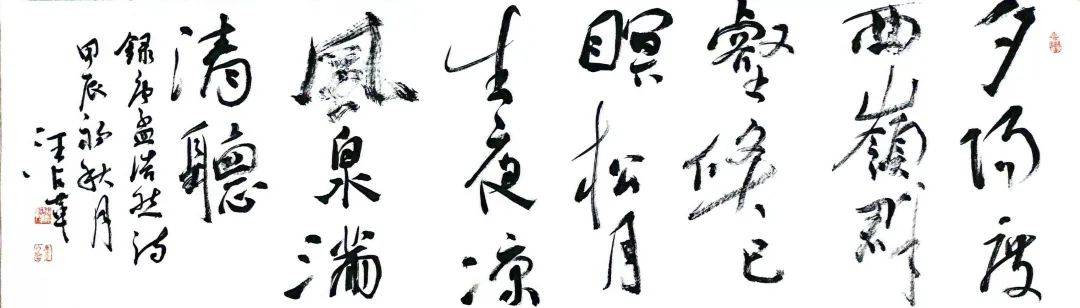 夕陽度
西嶺群
壑倏已
瞑松月
生夜涼
風泉滿
清聽
録唐孟浩然詩
甲辰初秋月
汪占